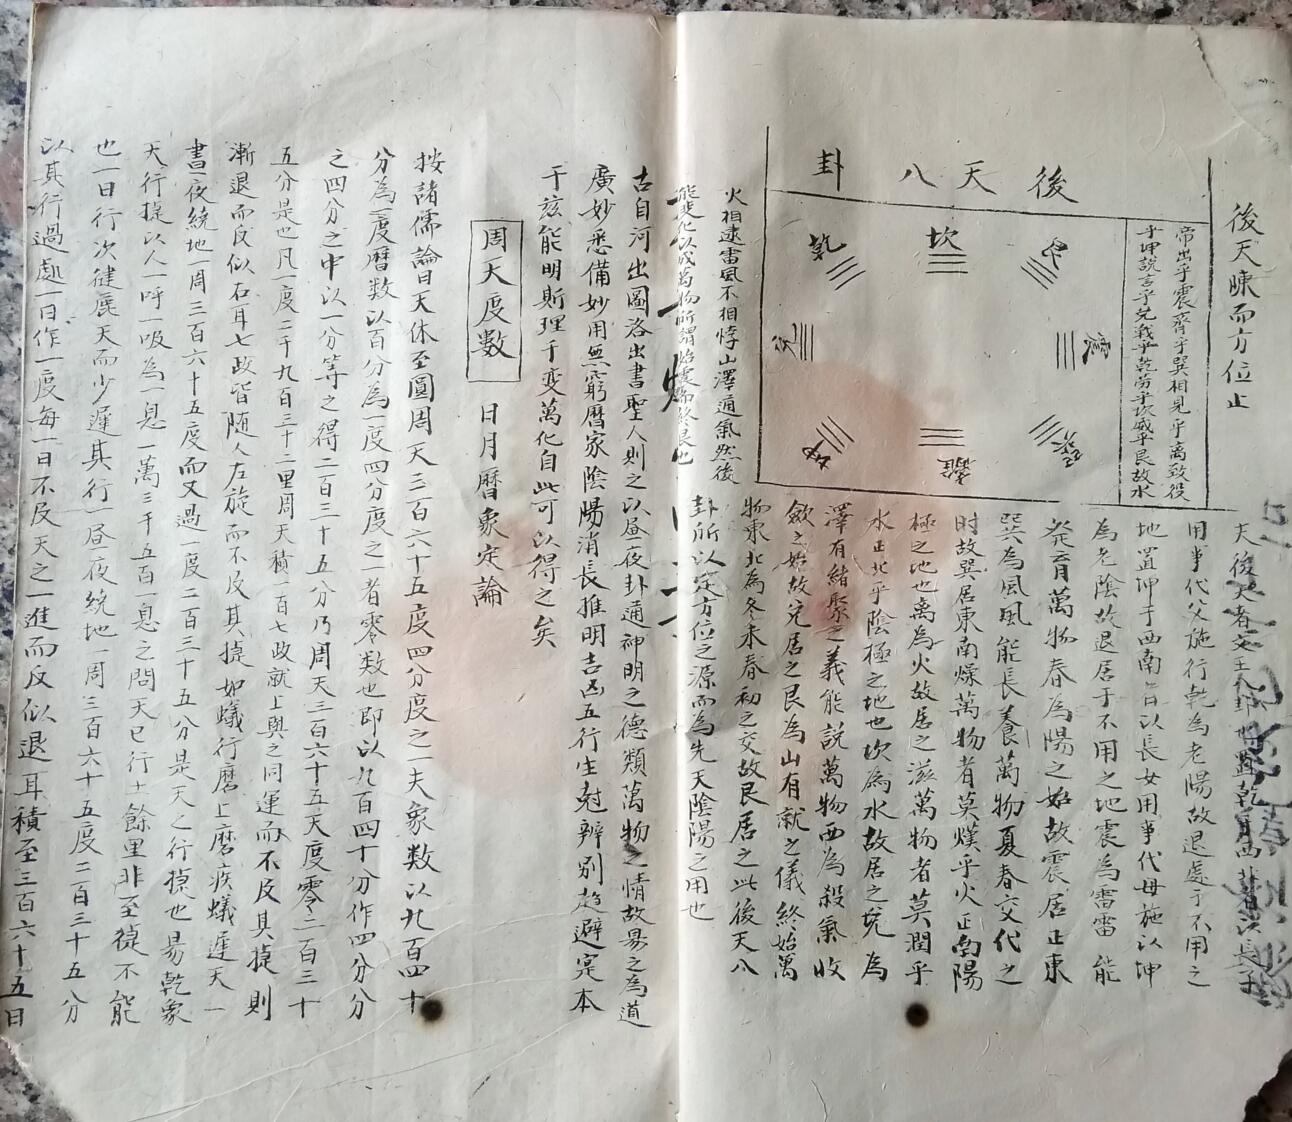 後天陳而方位止
後天八卦
帝出乎震齊乎巽相見乎離致役
乎坤說言乎兌戰乎乾勞乎坎成乎艮故水
艮
坎
乾
震
兌
巽
離
坤
火相逮雷風不相悖山澤通氣然後
能變化以成萬物所謂始震而終艮也
用事代父施行乾為老陽故退處于不用之
地置坤于西南者以長女用事代母施以坤
為老陰故退居于不用之地震為雷雷能
發育萬物春為陽之始故震居正東
巽為風風能長養萬物夏春交代之
時故巽居東南燥萬物者莫熯乎火正南陽
極之地也离為火故居之滋萬物者莫潤乎
水正北乎陰極之地也坎為水故居之兌為
澤有緒聚之義能說萬物西為殺氣收
斂之始故兌居之艮為山有就之儀終始萬
物東北為冬末春初之交故艮居之此後天八
卦所以定方位之源而為先天陰陽之用也
古自河出圖洛出書聖人則之以昼夜卦通神明之德類萬物之情故易之為道
廣妙悉備妙用無窮曆家陰陽消長推明吉凶五行生尅辨別趋避寔本
于兹能明斯理千变萬化自此可以得之矣
周天度數 日月曆象定論
按諸儒論曰天休至圓周天三百六十五度四分度之一夫象數以九百四十
分為一度曆數以百分為一度四分度之一者零数也即以九百四十分作四分分
之四分之中以一分等之得二百三十五分乃周天三百六十五天度零二百三十
五分是也凡一度二千九百三十二里周天積一百七政就上與之同運而不及其捷則
漸退而反似右耳七政皆随人左旋而不及其捷如蟻行磨上磨疾蟻遲天一
晝夜繞地一周三百六十五度而又過一度二百三十五分是天之行捷也易乾象
天行捷以人一呼一吸為一息一萬三千五百一息之間天已行十餘里非至徤不能
也一日行次徤麗天而少遲其行一昼一夜繞地一周三百六十五度二百三十五分
以其行過處一日作一度每一日不及天之一進而反似退耳積至三百六十五日